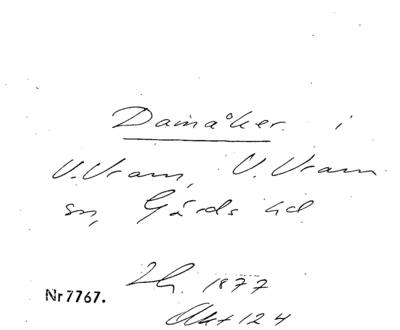 Damåker i
V. Vram, V. Vram
sn, Gärds hd
Lh. 1877
Nr 7767.
Akt 124